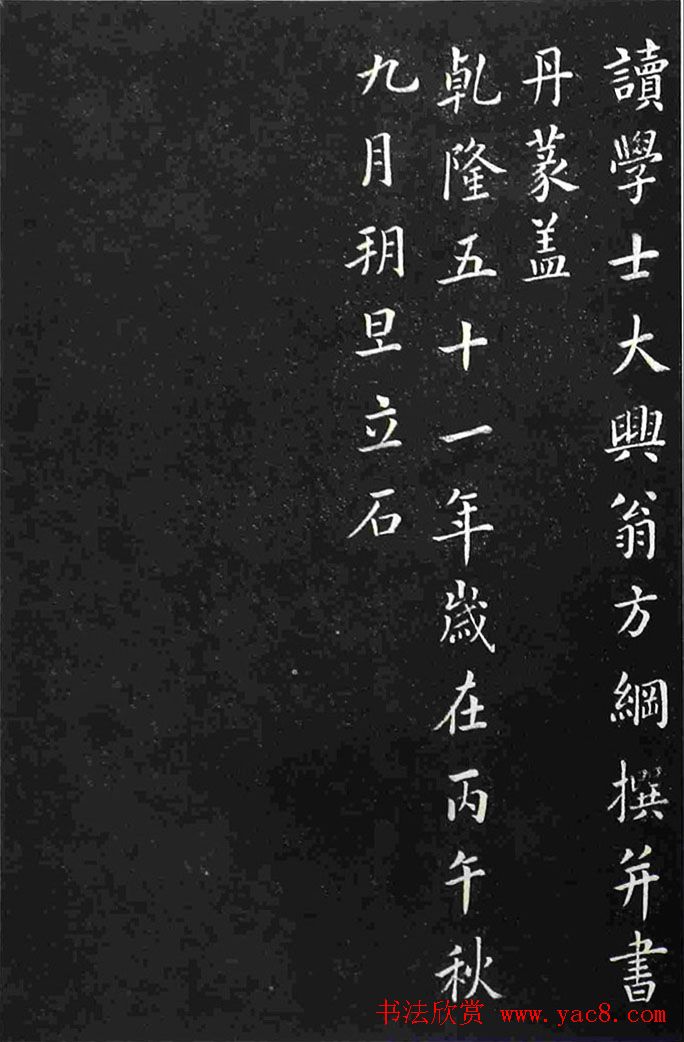 讀學士大興翁方綱撰并書
丹篆盖
乹隆五十一年歲在丙午秋
九月玥旦立石
书法欣赏 www.yac8.com